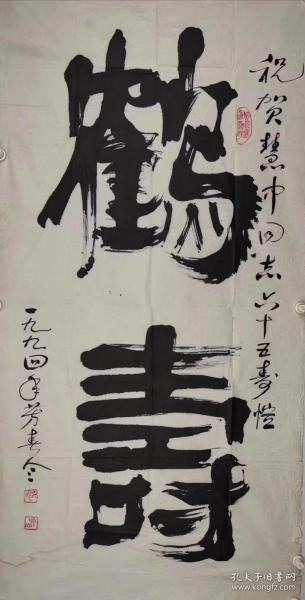 祝贺慧中同志六十五寿恺
鹤寿
一九九四年芳春
孔夫子旧书网